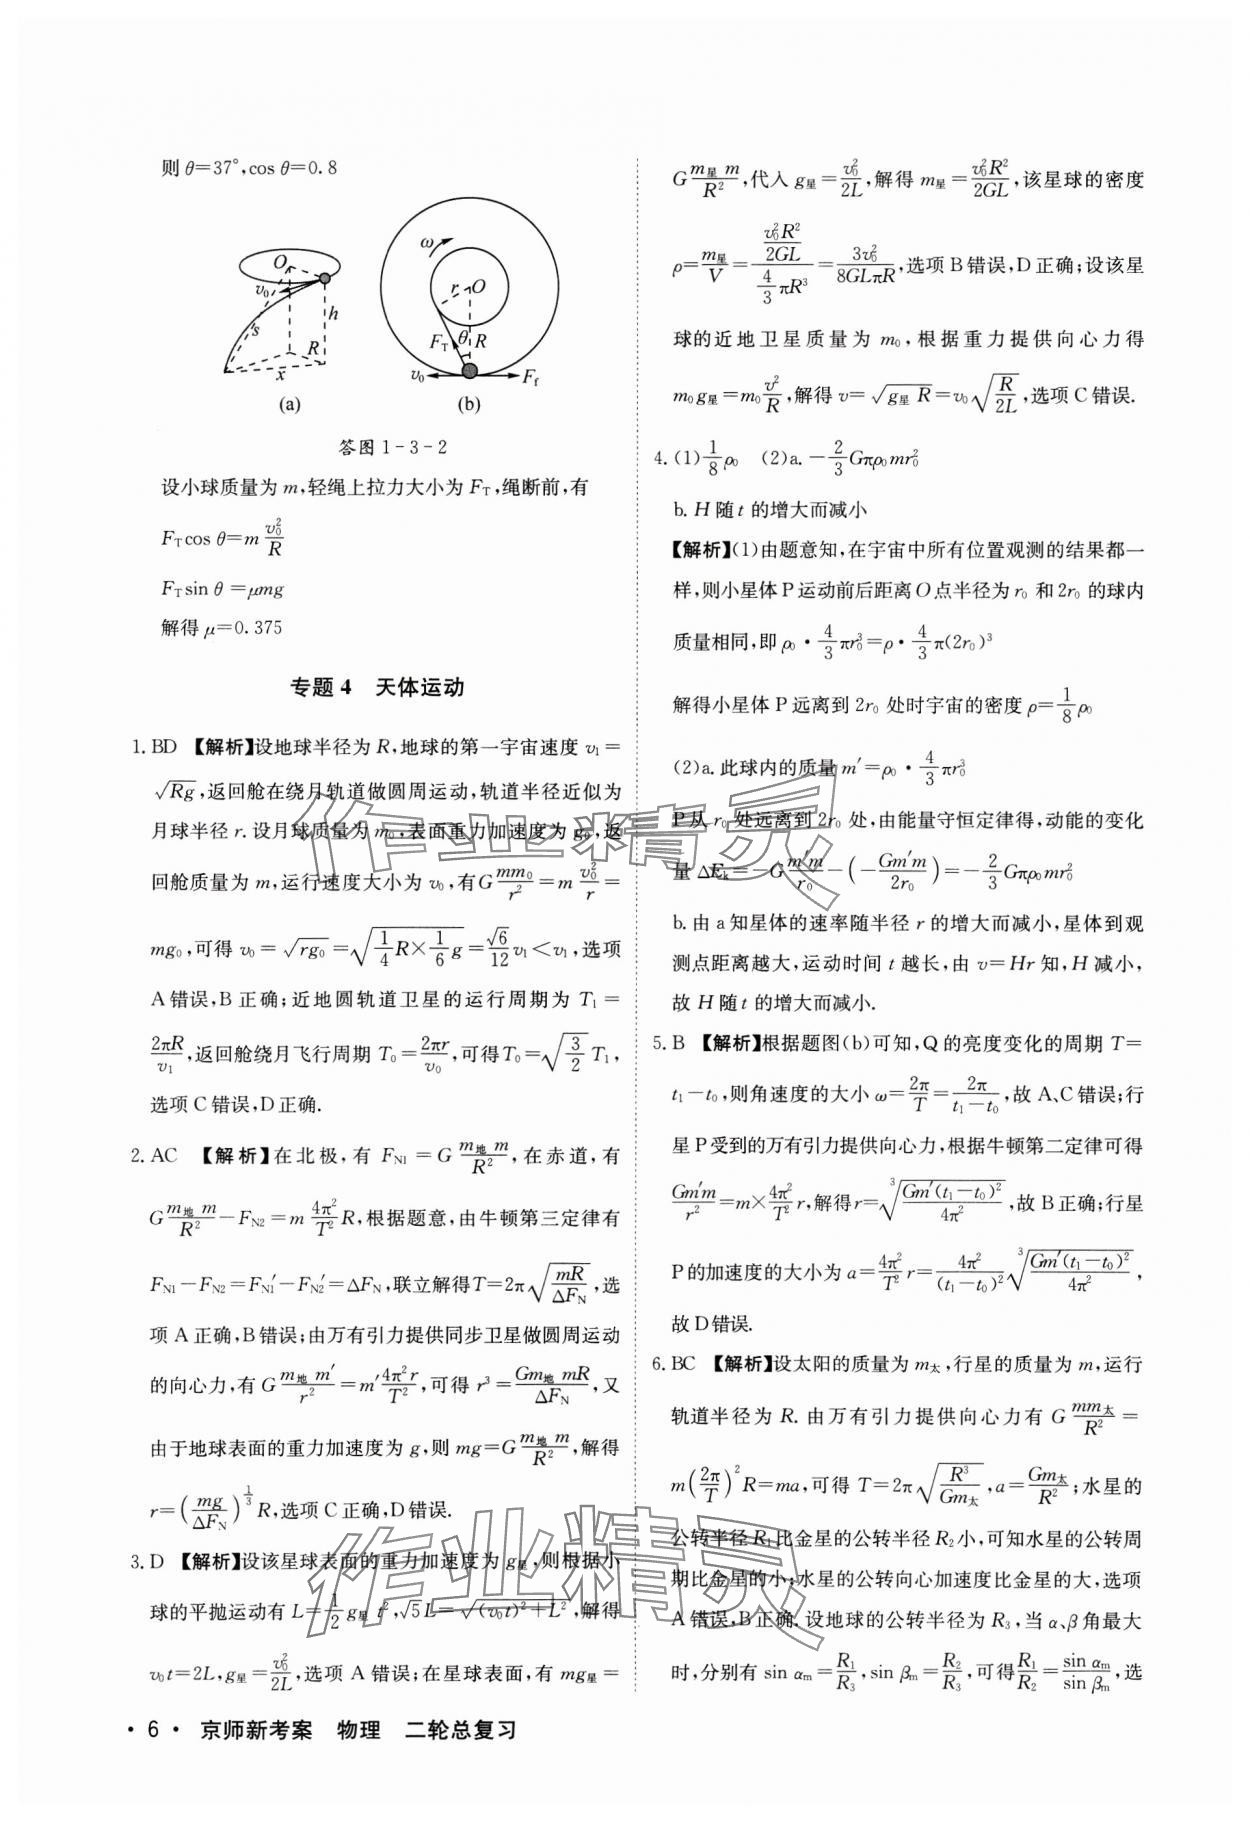 则 θ=37°,cos θ=0.8
O
v₀
s
h
R
x
(a)
ω
r
O
F_T
θ
R
v₀
F_f
(b)
答图 1-3-2
设小球质量为 m,轻绳上拉力大小为 F_T,绳断前,有
F_T cos θ=m v₀²/R
F_T sin θ=μmg
解得 μ=0.375
专题 4 天体运动
1. BD 【解析】设地球半径为 R,地球的第一宇宙速度 v₁=
√(Rg),返回舱在绕月轨道做圆周运动,轨道半径近似为
月球半径 r. 设月球质量为 m₀,表面重力加速度为 g₀,返
回舱质量为 m,运行速度大小为 v₀,有 G mm₀/r²=m v₀²/r=
mg₀,可得 v₀=√(rg₀)=√(1/4 R×1/6 g)=√6/12 v₁<v₁,选项
A 错误,B 正确;近地圆轨道卫星的运行周期为 T₁=
2πR/v₁,返回舱绕月飞行周期 T₀=2πr/v₀,可得 T₀=√(3/2) T₁,
选项 C 错误,D 正确.
2. AC 【解析】在北极,有 F_N1=G m地 m/R²,在赤道,有
G m地 m/R²-F_N2=m 4π²/T² R,根据题意,由牛顿第三定律有
F_N1-F_N2=F_N1′-F_N2′=ΔF_N,联立解得 T=2π√(mR/ΔF_N),选
项 A 正确,B 错误;由万有引力提供同步卫星做圆周运动
的向心力,有 G m地 m′/r²=m′ 4π²r/T²,可得 r³=Gm地 mR/ΔF_N,又
由于地球表面的重力加速度为 g,则 mg=G m地 m/R²,解得
r=(mg/ΔF_N)^(1/3) R,选项 C 正确,D 错误.
3. D 【解析】设该星球表面的重力加速度为 g星,则根据小
球的平抛运动有 L=1/2 g星 t²,√5 L=√((v₀t)²+L²),解得
v₀t=2L,g星=v₀²/2L,选项 A 错误;在星球表面,有 mg星=
G m星 m/R²,代入 g星=v₀²/2L,解得 m星=v₀²R²/2GL,该星球的密度
ρ=m星/V=(v₀²R²/2GL)/(4/3 πR³)=3v₀²/8GLπR,选项 B 错误,D 正确;设该星
球的近地卫星质量为 m₀,根据重力提供向心力得
m₀g星=m₀ v²/R,解得 v=√(g星 R)=v₀√(R/2L),选项 C 错误.
4. (1) 1/8 ρ₀ (2)a. -2/3 Gπρ₀mr₀²
b. H 随 t 的增大而减小
【解析】(1)由题意知,在宇宙中所有位置观测的结果都一
样,则小星体 P 运动前后距离 O 点半径为 r₀ 和 2r₀ 的球内
质量相同,即 ρ₀·4/3 πr₀³=ρ·4/3 π(2r₀)³
解得小星体 P 远离到 2r₀ 处时宇宙的密度 ρ=1/8 ρ₀
(2)a. 此球内的质量 m′=ρ₀·4/3 πr₀³
P 从 r₀ 处远离到 2r₀ 处,由能量守恒定律得,动能的变化
量 ΔE_k=-G m′m/r₀-(-Gm′m/2r₀)=-2/3 Gπρ₀mr₀²
b. 由 a 知星体的速率随半径 r 的增大而减小,星体到观
测点距离越大,运动时间 t 越长,由 v=Hr 知,H 减小,
故 H 随 t 的增大而减小.
5. B 【解析】根据题图(b)可知,Q 的亮度变化的周期 T=
t₁-t₀,则角速度的大小 ω=2π/T=2π/(t₁-t₀),故 A、C 错误;行
星 P 受到的万有引力提供向心力,根据牛顿第二定律可得
Gm′m/r²=m×4π²/T² r,解得 r=∛(Gm′(t₁-t₀)²/4π²),故 B 正确;行星
P 的加速度的大小为 a=4π²/T² r=4π²/(t₁-t₀)² ∛(Gm′(t₁-t₀)²/4π²),
故 D 错误.
6. BC 【解析】设太阳的质量为 m太,行星的质量为 m,运行
轨道半径为 R. 由万有引力提供向心力有 G mm太/R²=
m(2π/T)²R=ma,可得 T=2π√(R³/Gm太),a=Gm太/R²;水星的
公转半径 R₁比金星的公转半径 R₂小,可知水星的公转周
期比金星的小;水星的公转向心加速度比金星的大,选项
A 错误,B 正确. 设地球的公转半径为 R₃,当 α、β 角最大
时,分别有 sin αm=R₁/R₃,sin βm=R₂/R₃,可得 R₁/R₂=sin αm/sin βm,选
· 6 · 京师新考案 物理 二轮总复习
作业精灵
作业精灵